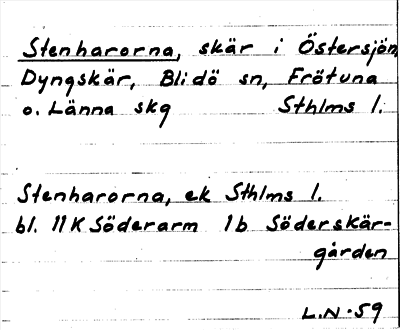 Stenharorna, skär i Östersjön,
Dyngskär, Blidö sn, Frötuna
o. Länna skg Sthlms l.
Stenharorna, ek Sthlms l.
bl. 11K Söderarm 1b Söderskär-
gården
L.N. 59